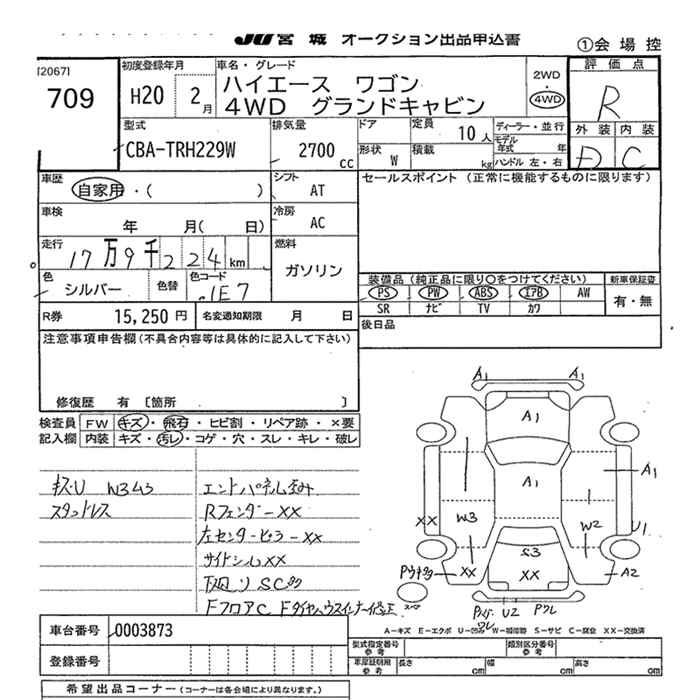 JU 宮城 オークション出品申込書
①会場控
[2067]
709
初度登録年月
H20 2月
車名・グレード
ハイエース ワゴン
4WD グランドキャビン
2WD
・
4WD
評価点
R
外装 内装
D C
型式
CBA-TRH229W
排気量
2700 cc
ドア
定員 10人
形状 W
積載 kg
ディーラー・並行
モデル年式 年
ハンドル 左・右
車歴
自家用・( )
シフト AT
セールスポイント (正常に機能するものに限ります)
車検
年 月( 日)
冷房 AC
走行
17万9千224km
燃料
ガソリン
色
シルバー
色替
色コード
1E7
装備品 (純正品に限り○をつけてください)
新車保証書
PS PW ABS エアB AW
有・無
SR ナビ TV カワ
R券 15,250円
名変通知期限 月 日
後日品
注意事項申告欄(不具合内容等は具体的に記入して下さい)
修復歴 有 [箇所 ]
検査員記入欄
FW キズ・飛石・ヒビ割・リペア跡・×要
内装 キズ・汚レ・コゲ・穴・スレ・キレ・破レ
キズ・U W3 S3
スタットレス
エンドパネル歪み
Rフェンダー XX
左センターピラー XX
サイドシル XX
下廻り SC多
FフロアC
A1 A1
A1
A1
A1
XX
W3
W2
U1
S3
XX
XX
A2
U2
A-キズ E-エクボ U-凹み W-補修跡 S-サビ C-腐食 XX-交換済
車台番号 0003873
登録番号
型式指定番号 参考
類別区分番号 参考
車庫証明用 参考
長さ cm
幅 cm
高さ cm
希望出品コーナー (コーナーは各会場により異なります。)